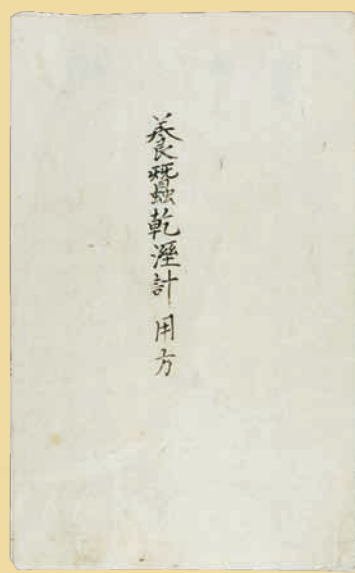 養蠶乾溼計 用方